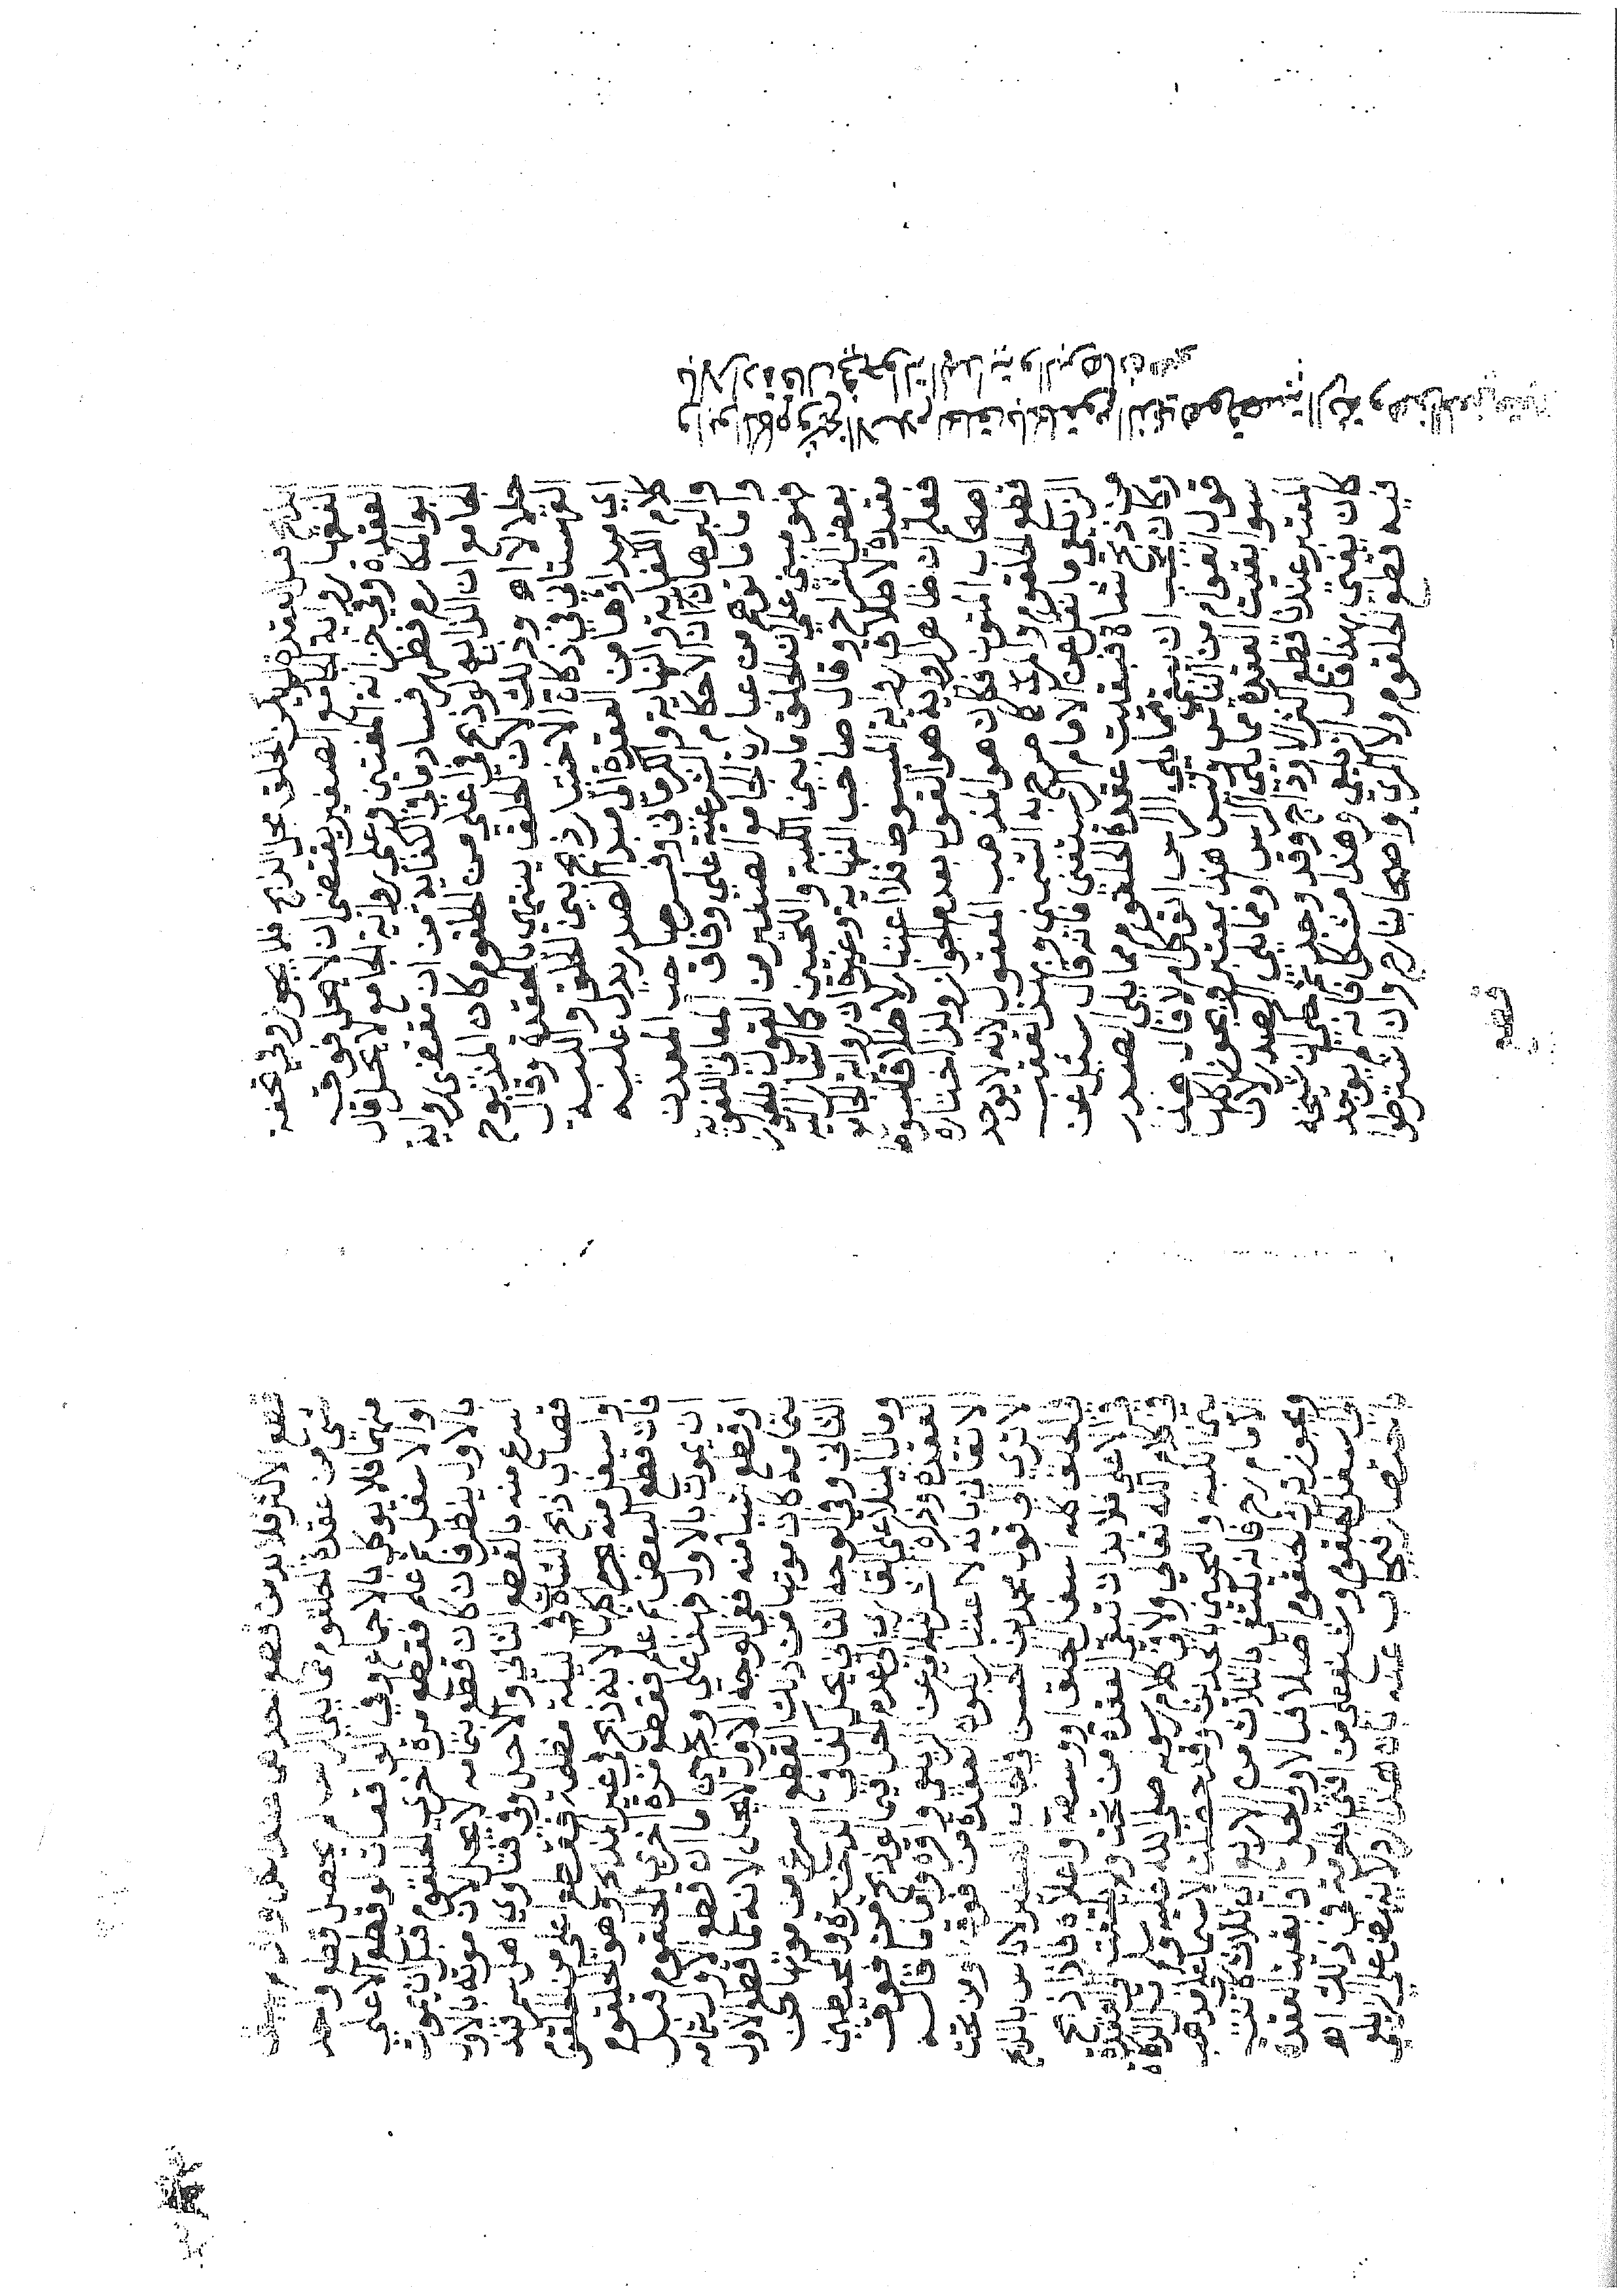 الذبح فوق العقدة لم يكن الحلق محل الذبح فلا يجوز وفي تحفة
الفقها رواية الجامع الصغير يقتضي ان لا يحل فوق
العقدة وفي خزانة المفتين وعلى رواية الجامع لا يحل قال
ابو المكارم فظهر فساد ما في الكفاية من ان مقتضى رواية
الجامع ان الذابح لو ذبح في اعلى من الحلقوم كان المذبوح
حلالا اه وذلك لان الحلق ينتهي بالعقدة وقال
القهستاني في ذكاة الاختيار ذبح بين الحلق واللبة
اي مبداوها من العقدة الى مبدا الصدر يدل عليه
كلام الكفاية والنهاية والكرماني وفسر صاحب المعدن
والبرهان ان الاحكام الشرعية على وفاق المعاني اللغوية
واما ما توهم من عبارة الجامع الصغير من القول بالجواز
فهو مبني على ان الحلق ما بين اللبة واللحيين كما اشار اليه
بعض الشراح وقال صاحب النهاية وغيره ان رواية الجامع
مقيدة لاطلاق رواية المبسوط فلا اعتبار لاطلاق المبسوط
فعلم ان ظاهر الرواية هو القول بعدم الجواز ولذا اختاره
اصحاب المتون فكان هو المذهب المعول لانه لا يوجد
قطع الحلقوم والمرئ كما صرح به الشمني وبهذا تعقب
الزيلعي ما نقل عن الامام الرستغفني فانه قال سئل عن
من ذبح شاة فبقيت عقدة الحلقوم مما يلي الصدر
وكان يجب ان تبقى مما يلي الراس اتوكل ام لا قال هذا
قول العوام من الناس وليس هذا بمعتبر ويجوز اكلها
سوا بقيت العقدة مما يلي الراس او مما يلي الصدر لان
المعتبر عندنا قطع اكثر الاوداج وقد وجد ثم حكى ان شيخه
كان يفتي بهذا قال الزيلعي وهذا مشكل فانه لم يوجد
فيه قطع الحلقوم ولا المرئ واصحابنا رح وان اشترطوا
قطع الاكثر فلا بد من قطع احدهما عند الكل واذا لم يبق
شي من عقدة الحلقوم مما يلي الراس لم يحصل قطع واحد
منهما فلا يوكل بالاجماع وفي الواقعات لو قطع الاعلى
او الاسفل ثم علم فقطع مرة اخرى الحلقوم قبل ان يموت
بالاول ينظر فان كان قطع بتمامه لا يحل لان موته بالاول
اسرع منه بالقطع الثاني والا حل وفي فتاوى اهل سمرقند
قصاب ذبح الشاة في ليلة مظلمة فقطع اعلى من الحلقوم
او اسفل منه يحرم اكلها لانه ذبح في غير المذبح وهو الحلقوم
فان قطع البعض ثم علم فقطع مرة اخرى الحلقوم قبل
ان يموت بالاول فهذا على وجهين اما ان قطع الاول بتمامه
او قطع شيا منه ففي الوجه الاول لا يحل لانه لما قطع الاول
بتمامه كان موتها من ذلك القطع اسرع من موتها من
الثاني وفي الوجه الثاني يحل كذا في الذخيرة والمحيطين
ومال المنلا علي القاري الى عدم الحل فيما لو ذبح من فوق
العقدة وذكره الشرنبلالي عن الزيلعي واقره واما ما قاله
الاتقاني بانه لا اعتبار بكون العقدة من فوق او من تحت
الا ترى الى قول محمد بن الحسن في الجامع الصغير لا باس بالذبح
في الحلق كله اسفل الحلق او وسطه او اعلاه فاذا ذبح
في الاعلى فلا بد ان تبقى العقدة من تحت ولم يلتفت الى العقدة
في كلام الله تعالى ولا في كلام رسوله صلى الله عليه وسلم بل الذكاة
بين اللبة واللحيين بالحديث وقد حصلت لا سيما على مذهب
الامام رح فانه يكتفي بالثلاث من الاربع اي ثلاث كانت
ويجوز ترك الحلقوم اصلا فبالاولى ان يحل اذا بقيت العقدة
الى اسفل الحلقوم وشنع على من افتى بالحرمة في ذلك اه
باختصار فيجاب عنه بان هذا على الزيلعي